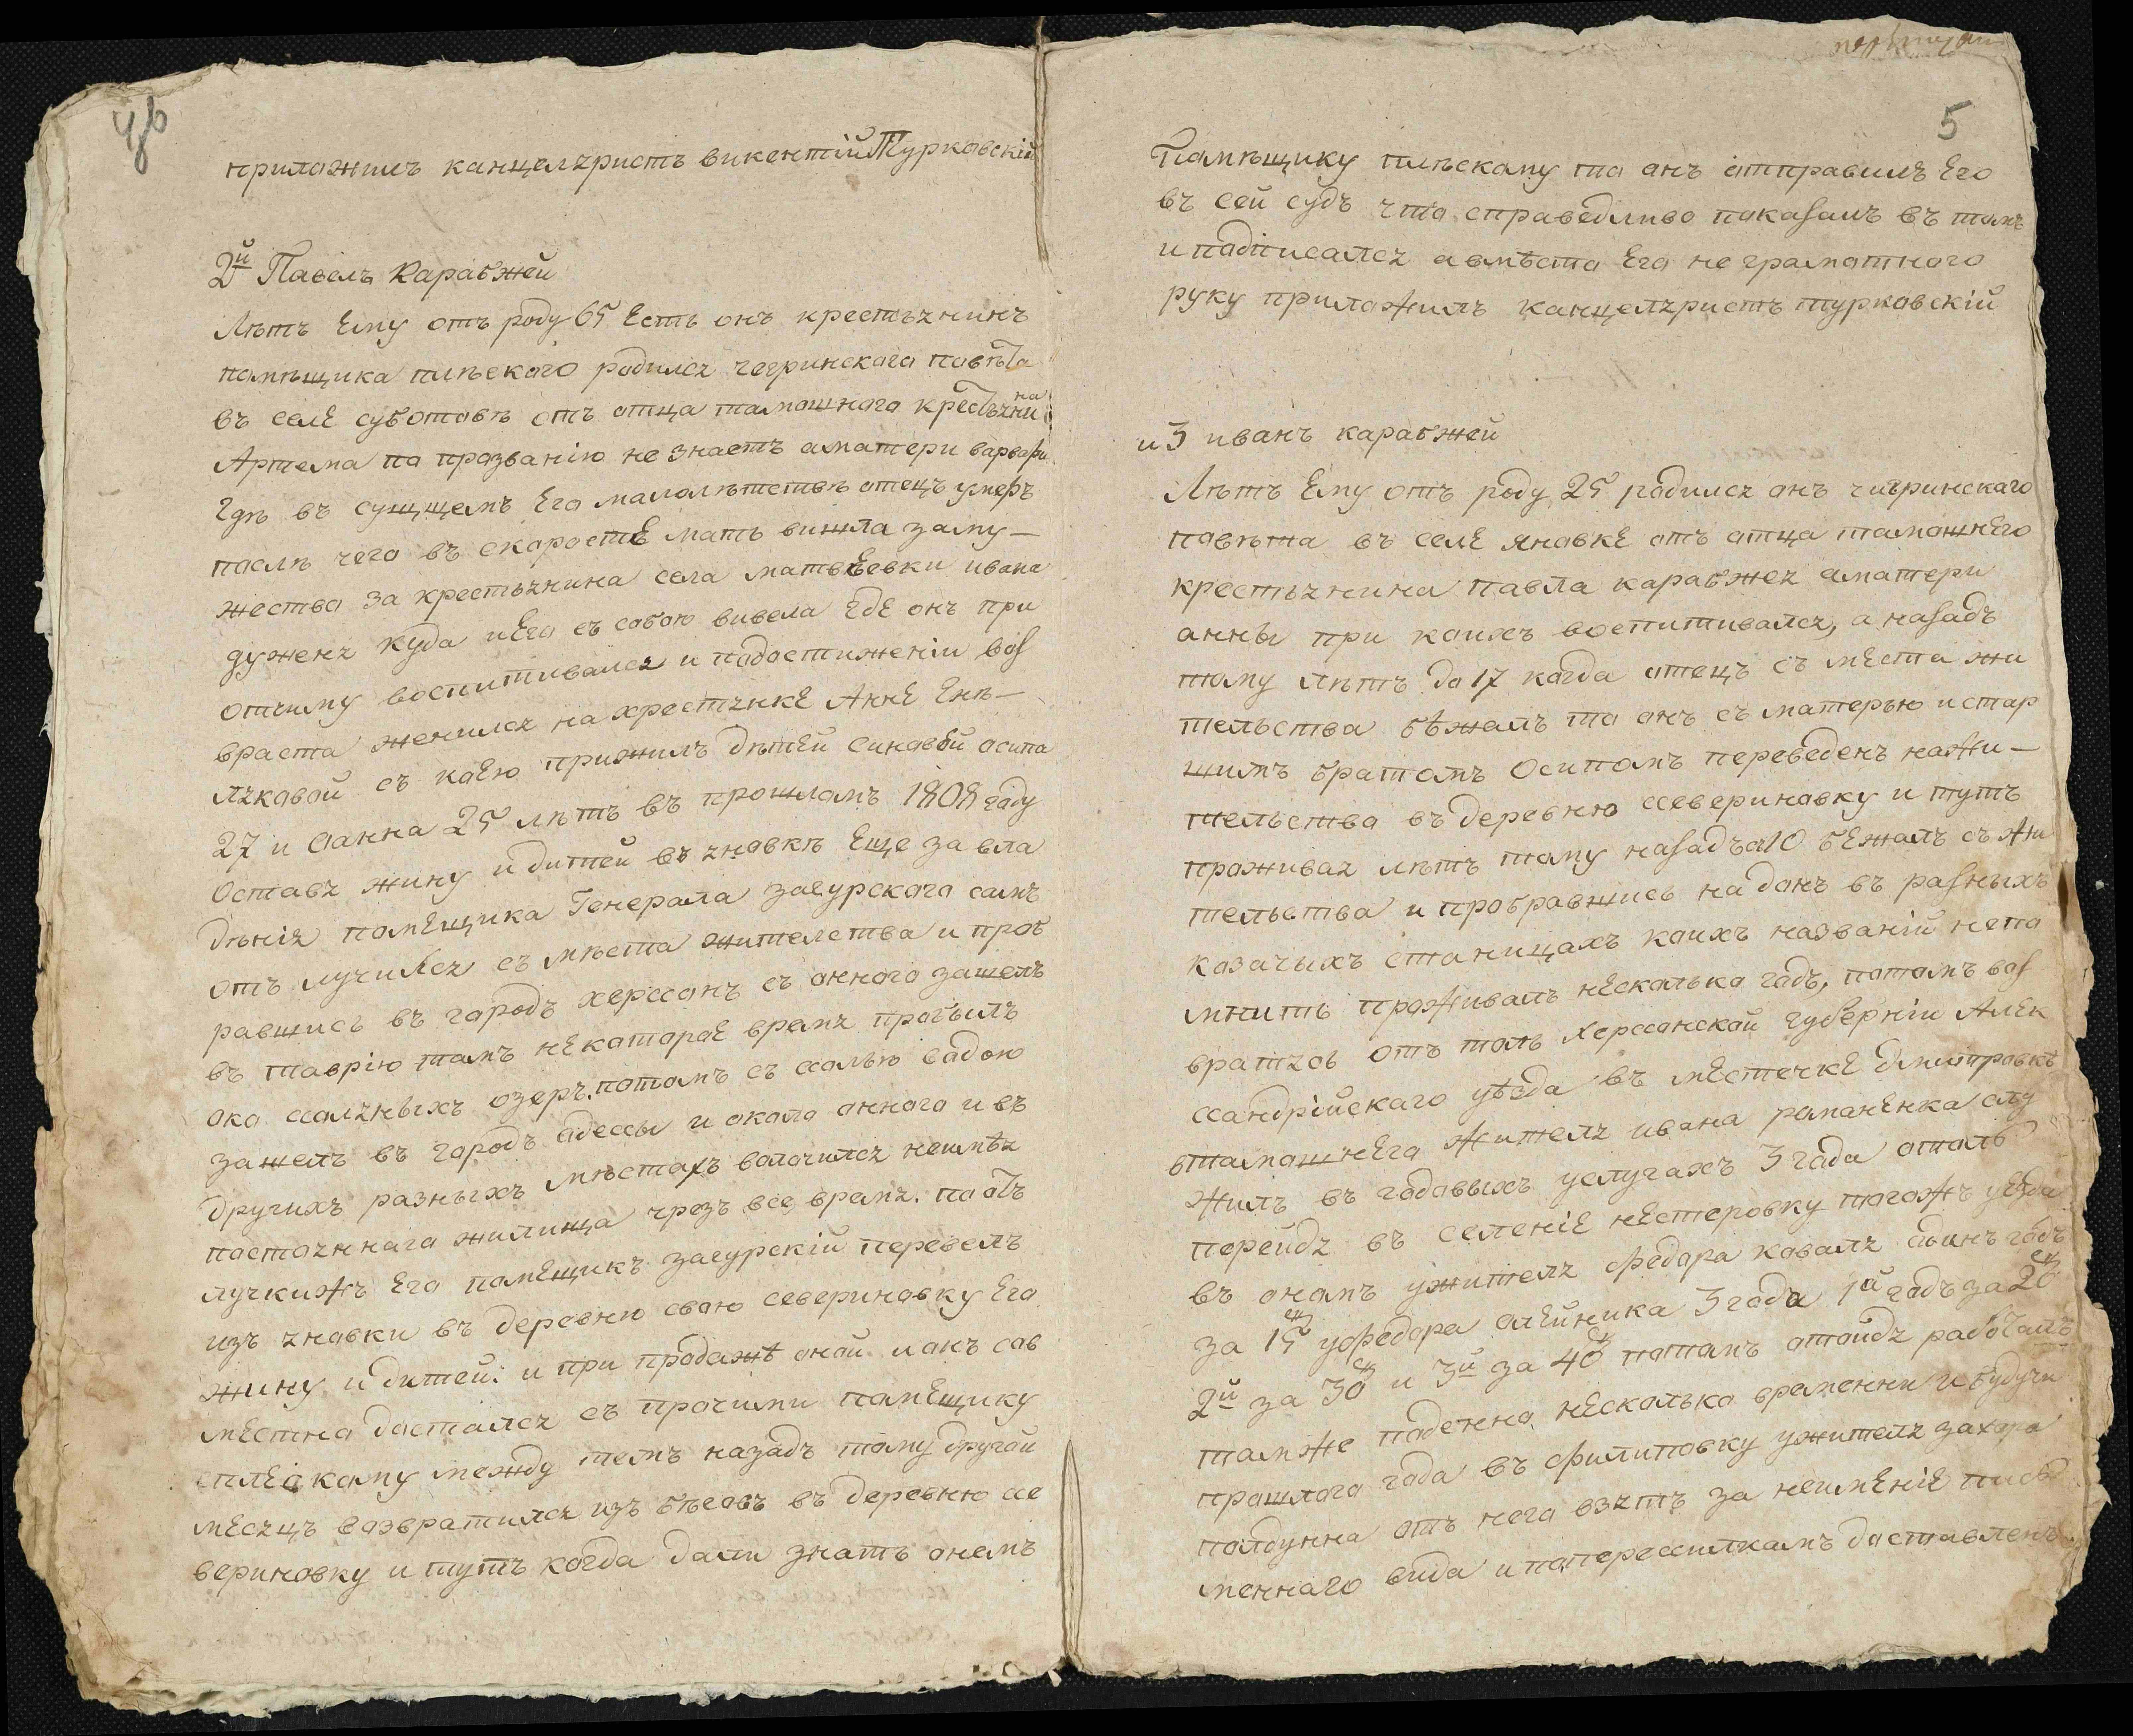 4об
приложилъ канцеляристъ викентій Турковскій
2й Павелъ Карабжей
Лѣтъ Ему отъ роду 65 Есть онъ крестьянинъ
помѣщика плѣского родился чегринскаго повѣта
въ селЕ суботовѣ отъ отца тамошнаго крестьяни
на
Артема по прозванію не знаетъ аматери варвары
Где въ сущщемъ Его малолѣтствѣ отецъ умеръ
послѣ чего въ скоростЕ мать вишла заму—
жество за хрестьянина села матвЕевки ивана
дуженя куда иЕго съ собою вивела гдЕ онъ при
отчиму воспитивался и подостиженіи воз
враста женился на хрестянкЕ АннЕ Ену—
ляковой съ коЕю прижилъ дѣтЕй синовей осипа
27 и Иванна 25 лѣтъ въ прошломъ 1808 году
Оставя жину идитей въ яновкѣ Еще за вла
дѣнія помЕщика Генерала загурского самъ
отълучился съ мѣста жителства и проб
равшись въ городъ херсонъ съ онного зашелъ
въ таврію тамъ нЕкотороЕ время пробылъ
око соляныхъ озеръ, потомъ съ солью садою
зашелъ въ городъ Одессы и около онного и въ
другихъ разныхъ мѣстахъ волочился неимѣя
постояннаго жилища чрезъ все время. по отъ
лучкижъ Его помЕщикъ загурскій перевелъ
изъ яновки въ деревню свою севериновку Его
жину идитей: и при продажѣ оной ионъ сов
мЕстно достался съ прочими помЕщику
сплЕскому между темъ назадъ тому другой
мЕсяцъ возвратился изъ бѣговъ въ деревню се
вериновку и тутъ когда дали знать онемъ
5
Помѣщику плѣскому то онъ отправилъ Его
въ сей судъ что справедливо показалъ въ томъ
и подписался авмѣсто Его не грамотного
руку приложилъ канцеляристъ турковскій
и3 иванъ карабжей
Лѣтъ Ему отъ роду 25 родился онъ чигринскаго
повѣта въ селЕ яновкЕ отъ отца тамошнЕго
крестьянина павла карабжея аматери
анны при коихъ воспитивался, а назадъ
тому лѣтъ до 17 когда отецъ съ мЕста жи
тельства бѣжалъ то онъ съ матерью истар
шимъ братомъ Осипомъ переведенъ нажи—
тельства въ деревню севериновку и тутъ
проживая лѣтъ тому назадъ 10 бЕжалъ съ жи
тельства и пробравшись на донъ въ разныхъ
козачыхъ станицахъ коихъ названій непо
мнитъ проживалъ нЕсколько годъ, потомъ воз
вратясь отъ толь Херсонской губерніи АлЕк
сандрійскаго уѣзда въ мЕстечкЕ дмитровкѣ
втамошнЕго жителя ивана романЕнка слу
жилъ въ годовыхъ услугахъ 3 года отоль
перейдя въ селеніЕ нЕстеровку тогожъ уѣзда
въ ономъ ужителя федора коваля одинъ годъ
за 15 уфедора олЕйника 3 года 1й годъ за 20
2й за 30 и 3й за 40 потомъ отойдя работалъ
тамже поденно нЕсколько временни и будучи
прошлого года въ филиповку ужителя захара
полдунна отъ него взятъ за неимЕніЕ пись
меннаго вида и поперессилкамъ доставленъ